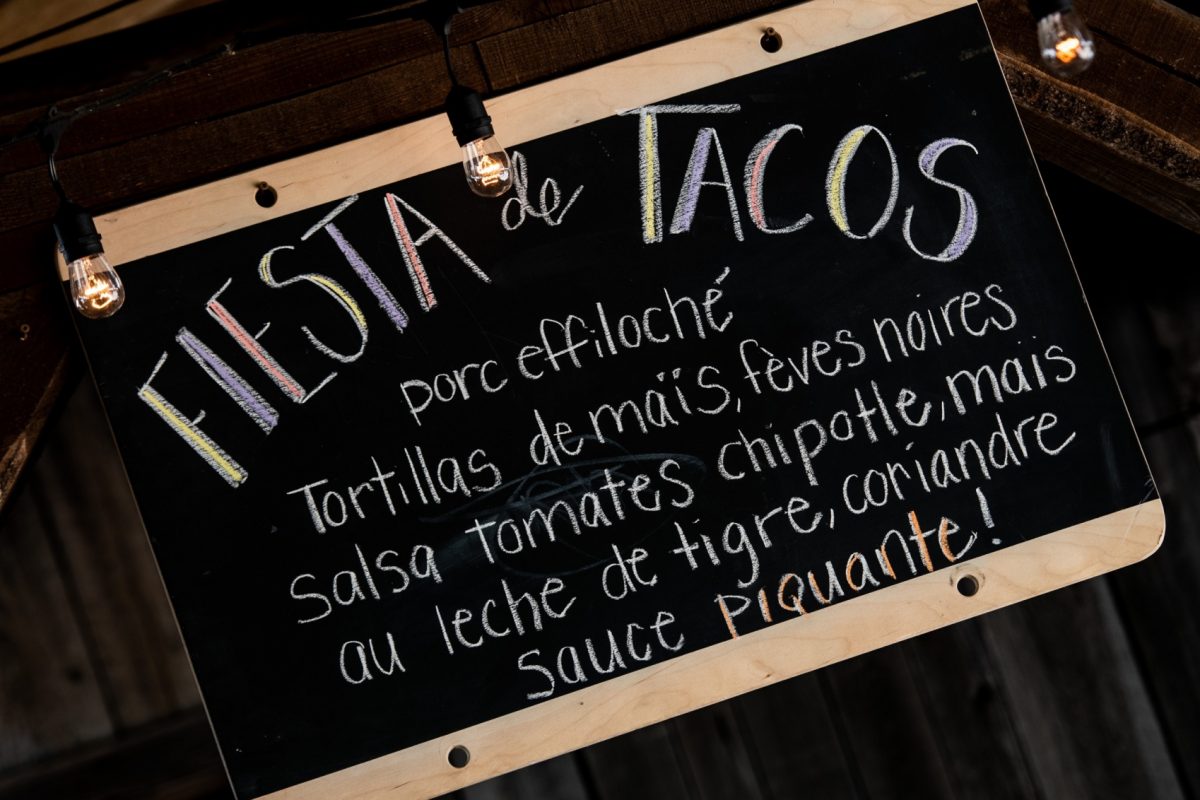 FIESTA de TACOS
porc effiloché
Tortillas de maïs, fèves noires
salsa tomates chipotle, maïs
au leche de tigre, coriandre
sauce piquante!